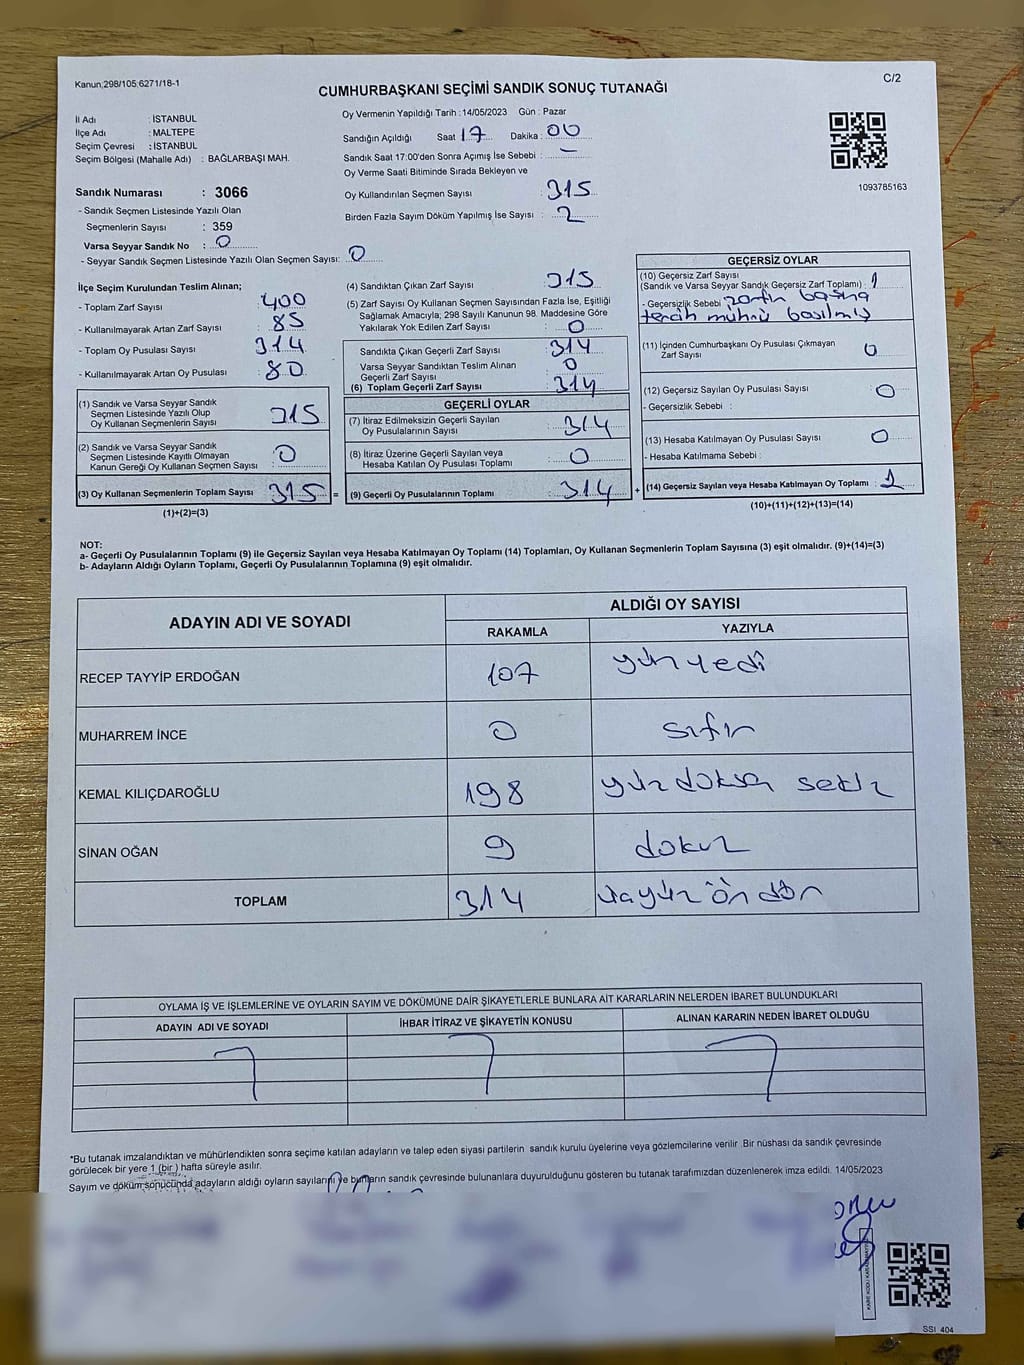 Kanun;298/105;6271/18-1
C/2
CUMHURBAŞKANI SEÇİMİ SANDIK SONUÇ TUTANAĞI
İl Adı : İSTANBUL
İlçe Adı : MALTEPE
Seçim Çevresi : İSTANBUL
Seçim Bölgesi (Mahalle Adı) : BAĞLARBAŞI MAH.
Sandık Numarası : 3066
- Sandık Seçmen Listesinde Yazılı Olan
Seçmenlerin Sayısı : 359
Varsa Seyyar Sandık No : 0
- Seyyar Sandık Seçmen Listesinde Yazılı Olan Seçmen Sayısı: 0
Oy Vermenin Yapıldığı Tarih : 14/05/2023 Gün : Pazar
Sandığın Açıldığı Saat 17 Dakika : 00
Sandık Saat 17:00'den Sonra Açımış İse Sebebi : —
Oy Verme Saati Bitiminde Sırada Bekleyen ve
Oy Kullandırılan Seçmen Sayısı : 315
Birden Fazla Sayım Döküm Yapılmış İse Sayısı : 2
1093785163
İlçe Seçim Kurulundan Teslim Alınan;
- Toplam Zarf Sayısı : 400
- Kullanılmayarak Artan Zarf Sayısı : 85
- Toplam Oy Pusulası Sayısı : 314
- Kullanılmayarak Artan Oy Pusulası : 80
(1) Sandık ve Varsa Seyyar Sandık
Seçmen Listesinde Yazılı Olup
Oy Kullanan Seçmenlerin Sayısı : 315
(2) Sandık ve Varsa Seyyar Sandık
Seçmen Listesinde Kayıtlı Olmayan
Kanun Gereği Oy Kullanan Seçmen Sayısı : 0
(3) Oy Kullanan Seçmenlerin Toplam Sayısı : 315 =
(1)+(2)=(3)
(4) Sandıktan Çıkan Zarf Sayısı : 315
(5) Zarf Sayısı Oy Kullanan Seçmen Sayısından Fazla İse, Eşitliği
Sağlamak Amacıyla; 298 Sayılı Kanunun 98. Maddesine Göre
Yakılarak Yok Edilen Zarf Sayısı : 0
Sandıkta Çıkan Geçerli Zarf Sayısı : 314
Varsa Seyyar Sandıktan Teslim Alınan
Geçerli Zarf Sayısı : 0
(6) Toplam Geçerli Zarf Sayısı : 314
GEÇERLİ OYLAR
(7) İtiraz Edilmeksizin Geçerli Sayılan
Oy Pusulalarının Sayısı : 314
(8) İtiraz Üzerine Geçerli Sayılan veya
Hesaba Katılan Oy Pusulası Toplamı : 0
(9) Geçerli Oy Pusulalarının Toplamı : 314 +
GEÇERSİZ OYLAR
(10) Geçersiz Zarf Sayısı
(Sandık ve Varsa Seyyar Sandık Geçersiz Zarf Toplamı) : 1
- Geçersizlik Sebebi : zarfın başına
tercih mührü basılmış
(11) İçinden Cumhurbaşkanı Oy Pusulası Çıkmayan
Zarf Sayısı : 0
(12) Geçersiz Sayılan Oy Pusulası Sayısı : 0
- Geçersizlik Sebebi :
(13) Hesaba Katılmayan Oy Pusulası Sayısı : 0
- Hesaba Katılmama Sebebi :
(14) Geçersiz Sayılan veya Hesaba Katılmayan Oy Toplamı : 1
(10)+(11)+(12)+(13)=(14)
NOT:
a- Geçerli Oy Pusulalarının Toplamı (9) ile Geçersiz Sayılan veya Hesaba Katılmayan Oy Toplamı (14) Toplamları, Oy Kullanan Seçmenlerin Toplam Sayısına (3) eşit olmalıdır. (9)+(14)=(3)
b- Adayların Aldığı Oyların Toplamı, Geçerli Oy Pusulalarının Toplamına (9) eşit olmalıdır.
ADAYIN ADI VE SOYADI
ALDIĞI OY SAYISI
RAKAMLA YAZIYLA
RECEP TAYYİP ERDOĞAN 107 yüz yedi
MUHARREM İNCE 0 sıfır
KEMAL KILIÇDAROĞLU 198 yüz doksan sekiz
SİNAN OĞAN 9 dokuz
TOPLAM 314 üçyüz on dört
OYLAMA İŞ VE İŞLEMLERİNE VE OYLARIN SAYIM VE DÖKÜMÜNE DAİR ŞİKAYETLERLE BUNLARA AİT KARARLARIN NELERDEN İBARET BULUNDUKLARI
ADAYIN ADI VE SOYADI İHBAR İTİRAZ VE ŞİKAYETİN KONUSU ALINAN KARARIN NEDEN İBARET OLDUĞU
*Bu tutanak imzalandıktan ve mühürlendikten sonra seçime katılan adayların ve talep eden siyasi partilerin sandık kurulu üyelerine veya gözlemcilerine verilir. Bir nüshası da sandık çevresinde
görülecek bir yere 1 (bir ) hafta süreyle asılır.
Sayım ve döküm sonucunda adayların aldığı oyların sayılarını ve bunların sandık çevresinde bulunanlara duyurulduğunu gösteren bu tutanak tarafımızdan düzenlenerek imza edildi. 14/05/2023
SSI_404